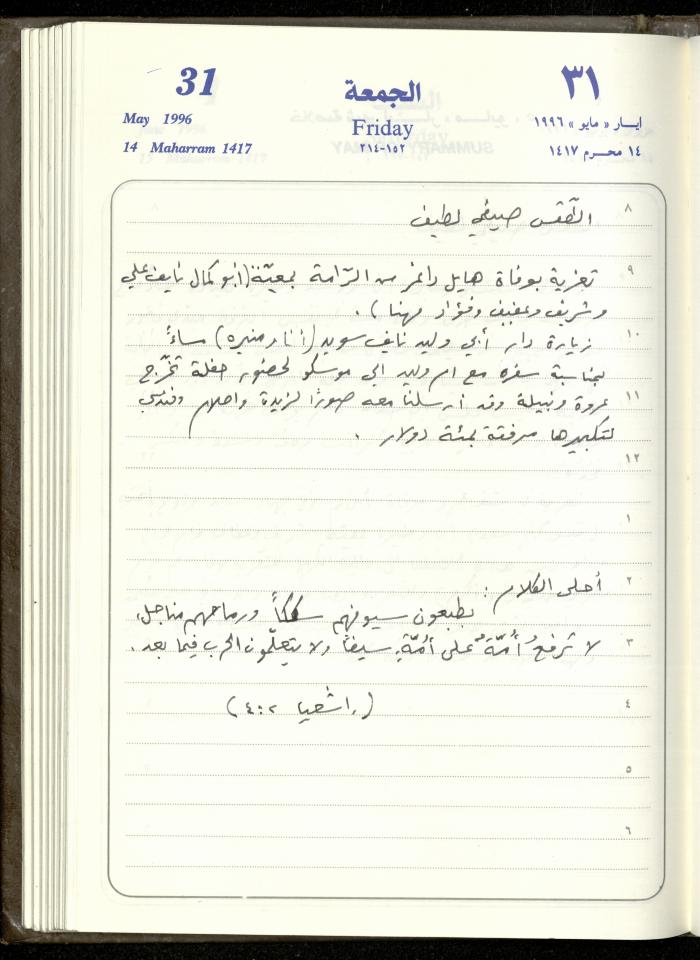 31
الجمعة
٣١
May 1996
Friday
ايـار « مايو » ١٩٩٦
14 Maharram 1417
٢١٤-١٥٢
١٤ محـرم ١٤١٧
٨ الطّقس صيفي لطيف
٩ تعزية بوفاة هايل من الرّامة بمعيّة (ابو كمال نايف علي
وشريف وعفيف وفؤاد مهنا).
١٠ زيارة دار أبي وليد نايف سويد (أنا ومنيره) مساءً
بمناسبة سفره مع ام وليد الى موسكو لحضور حفلة تخّرج
١١ عروة ونبيلة وقد أرسلنا معه صورًا لزيدة واحلام وفندي
لتكبيرها مرفقة بمئة دولار.
١٢
١
٢ أحلى الكلام:
يطبعون سيوفهم سككاً ورماحهم مناجل،
٣ لا ترفعُ أُمّةٌ على أمّةٍ سيفاً ولا يتعلّمون الحرب فيما بعد.
٤ (اشعيا ٤:٢)
٥
٦